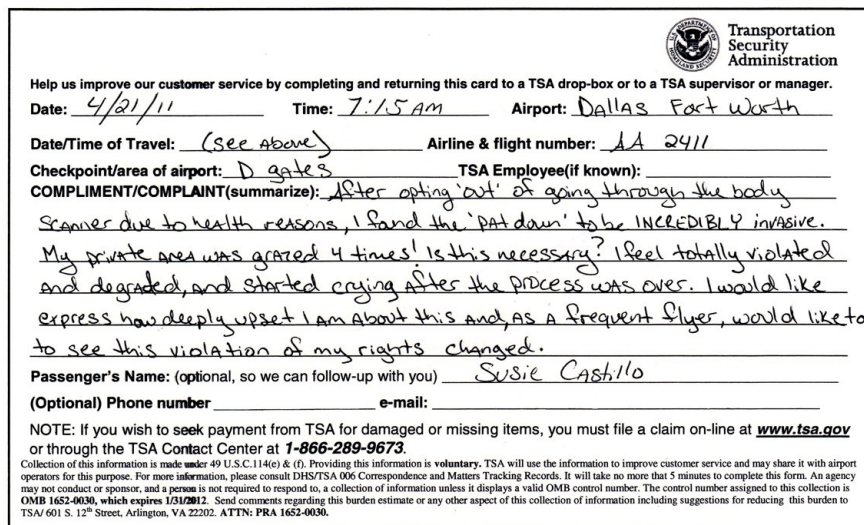 U.S. DEPARTMENT OF
HOMELAND SECURITY
Transportation
Security
Administration
Help us improve our customer service by completing and returning this card to a TSA drop-box or to a TSA supervisor or manager.
Date: 4/21/11 Time: 7:15 AM Airport: Dallas Fort Worth
Date/Time of Travel: (see Above) Airline & flight number: AA 2411
Checkpoint/area of airport: D gates TSA Employee(if known):
COMPLIMENT/COMPLAINT(summarize): After opting 'out' of going through the body
scanner due to health reasons, I found the 'PAT down' to be INCREDIBLY invasive.
My private area was grazed 4 times! Is this necessary? I feel totally violated
and degraded, and started crying after the process was over. I would like
express how deeply upset I am about this and, as a frequent flyer, would like to
to see this violation of my rights changed.
Passenger's Name: (optional, so we can follow-up with you) Susie Castillo
(Optional) Phone number e-mail:
NOTE: If you wish to seek payment from TSA for damaged or missing items, you must file a claim on-line at www.tsa.gov
or through the TSA Contact Center at 1-866-289-9673.
Collection of this information is made under 49 U.S.C.114(e) & (f). Providing this information is voluntary. TSA will use the information to improve customer service and may share it with airport
operators for this purpose. For more information, please consult DHS/TSA 006 Correspondence and Matters Tracking Records. It will take no more that 5 minutes to complete this form. An agency
may not conduct or sponsor, and a person is not required to respond to, a collection of information unless it displays a valid OMB control number. The control number assigned to this collection is
OMB 1652-0030, which expires 1/31/2012. Send comments regarding this burden estimate or any other aspect of this collection of information including suggestions for reducing this burden to
TSA/ 601 S. 12th Street, Arlington, VA 22202. ATTN: PRA 1652-0030.